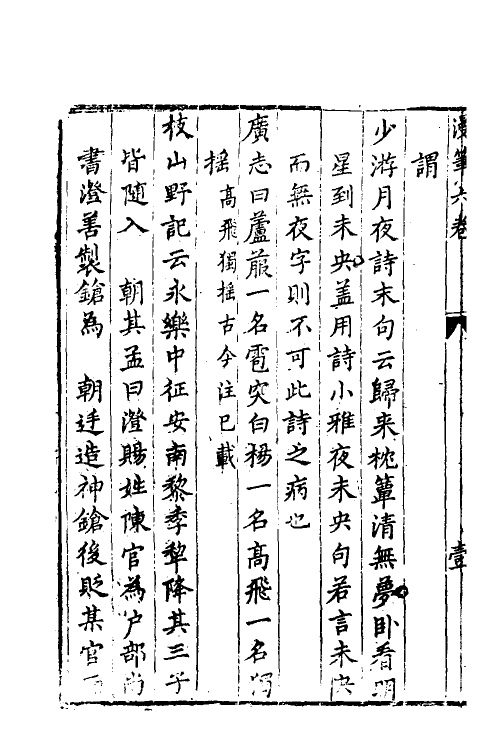 漫筆六卷 壹
謂
少游月夜詩末句云歸来枕簟清無夢卧看明
星到未央盖用詩小雅夜未央句若言未央
而無夜字則不可此詩之病也
廣志曰蘆菔一名雹突白楊一名高飛一名獨
揺高飛獨揺古今注已載
枝山野記云永樂中征安南黎季犂降其三子
皆随入 朝其孟曰澄賜姓陳官為户部尚
書澄善製鎗為 朝廷造神鎗後貶某官